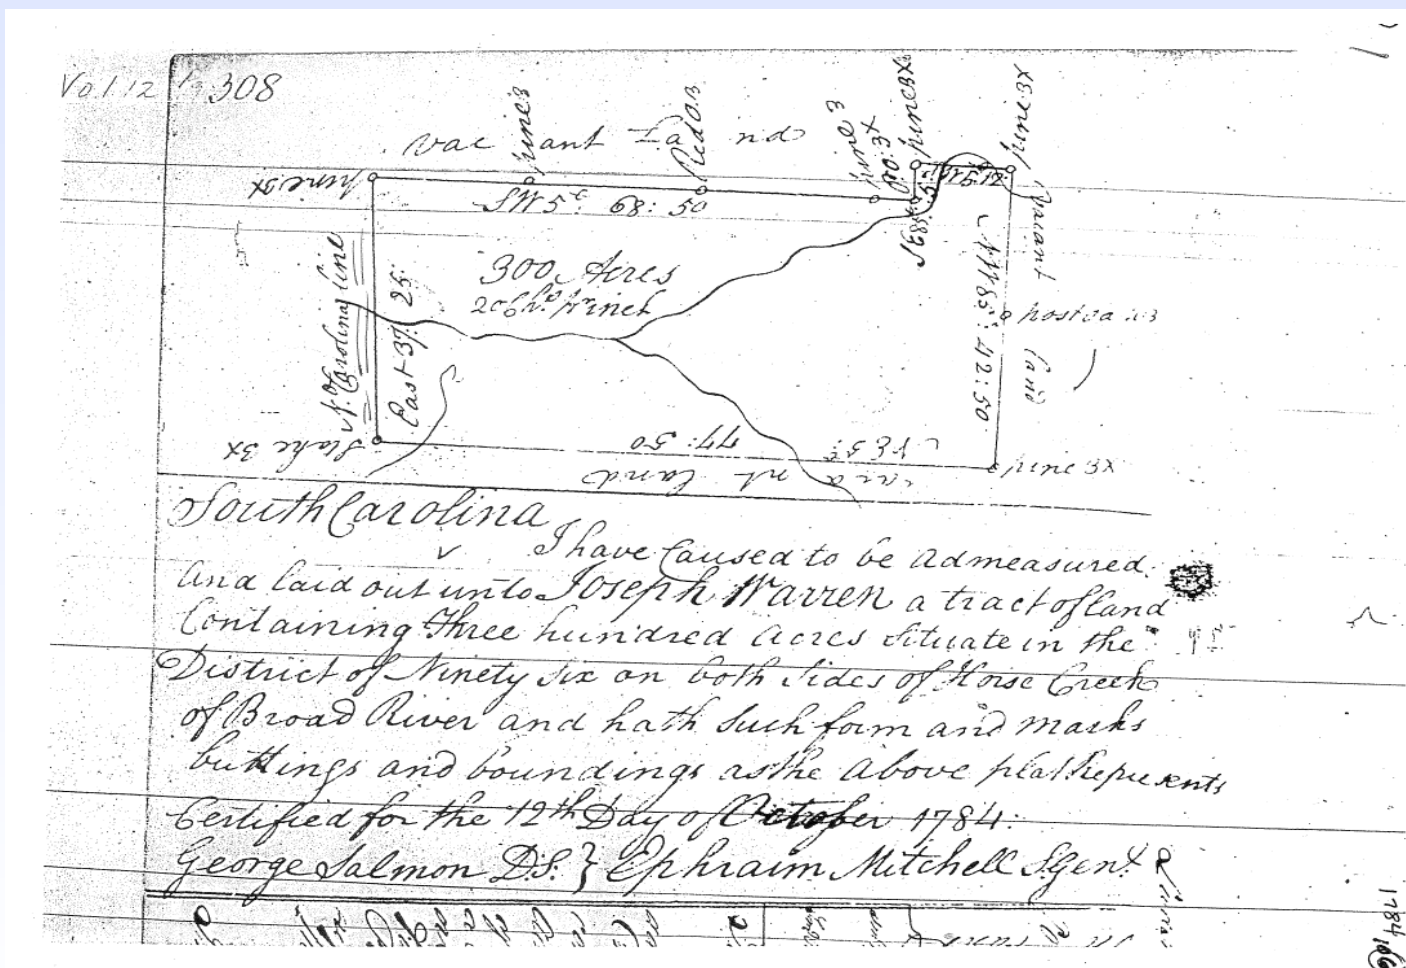 Vol. 12 Pg 308
Vacant Land
pine 3
Red O 3
pine 3
R O: 3X
pine 3X
pine 3X
pine 3X
SW5° 69: 50
Vacant
Land
300 Acres
20 Chs. pr. inch
No. Carolina line
East 37: 25:
NW85: 42:50
post oa
Stake 3X
77: 50
NE5°
pine 3X
nt Land
South Carolina
I have Caused to be admeasured
And laid out unto Joseph Warren a tract of Land
Containing Three hundred acres Situate in the
District of Ninety six on both Sides of Horse Creek
of Broad River and hath Such form and marks
buttings and boundings as the above plat Represents
Certified for the 12th Day of October 1784:
George Salmon D.S. } Ephraim Mitchell S.Genl.
1784